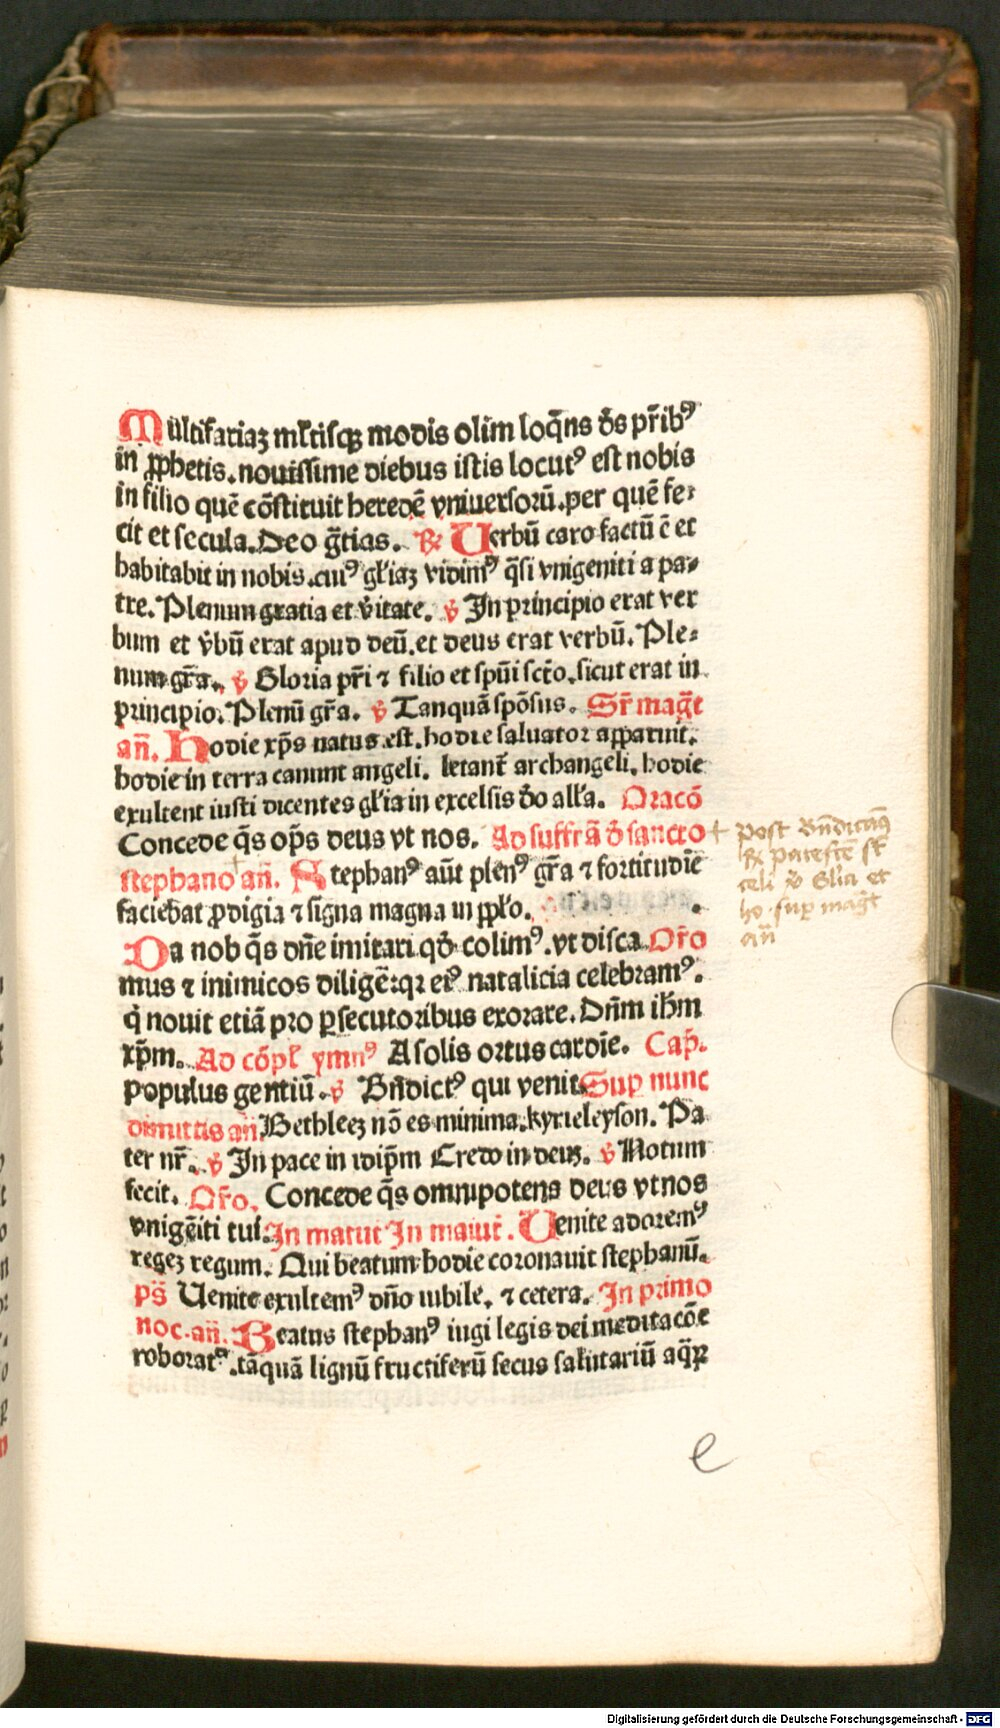 Multifariaꝫ ml̃tisqꝫ modis olim loq̃ns ds̃ pr̃ibꝰ
in ꝓphetis. nouissime diebus istis locutꝰ est nobis
in filio quē cōstituit heredē vniuersorū. per quē fe⸗
cit et secula. Deo gr̃tias. ℟ Uerbū caro factū ē et
habitabit in nobis. cuiꝰ gl̃iaꝫ vidimꝰ q̃si vnigeniti a pa⸗
tre. Plenum gratia et v̓itate. ℣ In principio erat ver
bum et v̓bū erat apud deū. et deus erat verbū. Ple⸗
num gr̃a. ℣ Gloria pr̃i ⁊ filio et spūi sct̃o. sicut erat in
principio. Plenū gr̃a. ℣ Tanquā spōsus. Sr̃ mag̃t
an̄. Hodie xp̄s natus est. hodie saluator apparuit.
hodie in terra canunt angeli. letant̃ archangeli. hodie
exultent iusti dicentes gl̃ia in excelsis dō all̃a. Oracō
Concede q̄s op̄s deus vt nos. Ad suffrā d̓ sancto
stephano an̄. Stephanꝰ aūt plenꝰ gr̃a ⁊ fortitudīe
faciebat ꝓdigia ⁊ signa magna in ppl̃o.
Da nob q̄s dn̄e imitari qd̓ colimꝰ. vt disca Or̃o
mus ⁊ inimicos diligē: qꝛ eiꝰ natalicia celebramꝰ.
q̓ nouit etiā pro ꝑsecutoribus exorare. Dn̄m ih̄m
xp̄m. Ad cōpl̃ ymnꝰ A solis ortus cardīe. Cap̃.
populus gentiū. ℣ Bn̄dictꝰ qui venit. Sup nunc
dimittis an̄ Bethleeꝫ nō es minima. kyrieleyson. Pa
ter nr̃. ℣ In pace in idip̄m Credo in deuꝫ. ℣ Notum
fecit. Or̃o. Concede q̄s omnipotens deus vt nos
vnigēiti tui. In matut̃ In maiut̃. Uenite adoremꝰ
regeꝫ regum. Qui beatum hodie coronauit stephanū.
ps̄ Uenite exultemꝰ dn̄o iubile. ⁊ cetera. In primo
noc. an̄. Beatus stephanꝰ iugi legis dei meditacōe
roboratꝰ. tāquā lignū fructiferū secus salutariū aq̃ꝝ
+ post Bn̄dictus
℟ patefcē st̄
celi ℣ Glia et
ho. sup mag̃t
an̄
e
Digitalisierung gefördert durch die Deutsche Forschungsgemeinschaft - DFG